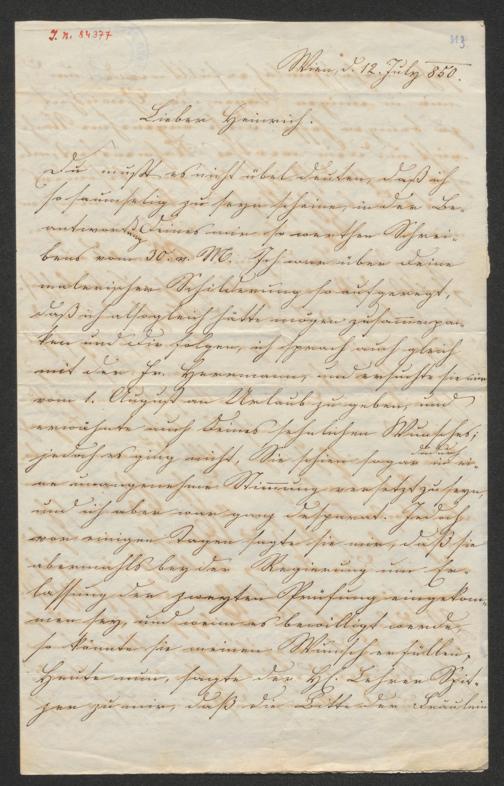 J. N. 84377
Wien, d. 12. July 850.
Lieber Heinrich.
Du mußt es nicht übel deuten, daß ich
so saumselig zu seyn scheine, in der Be-
antwortung Deines mir so werthen Schrei-
bens vom 30. v. M. Ich war über deine
malerischen Schilderung so aufgeregt,
daß ich alsogleich hätte mögen zusammenpa-
ken und dir folgen, ich sprach auch gleich
mit der Fr. Herrmann, und ersuchte sie mir
vom 1. August an Urlaub zu geben, und
erwähnte auch Deines sehnlichen Wunsches;
jedoch es ging nicht, Sie schien sogar in ei-
ne unangenehme Stimmung versetzt zu seyn,
und ich aber war ganz desparat. Jedoch
vor einigen Tagen sagte sie mir, daß sie
abermahls bey der Regierung um Er-
lassung der zweyten Prüfung eingekom-
men sey, und wenn es bewilligt werde,
so könnte sie meinen Wunsch erfüllen.
Heute nun, sagte der H. Lehrer Spit-
zer zu mir, daß die Bitte der Fräulein